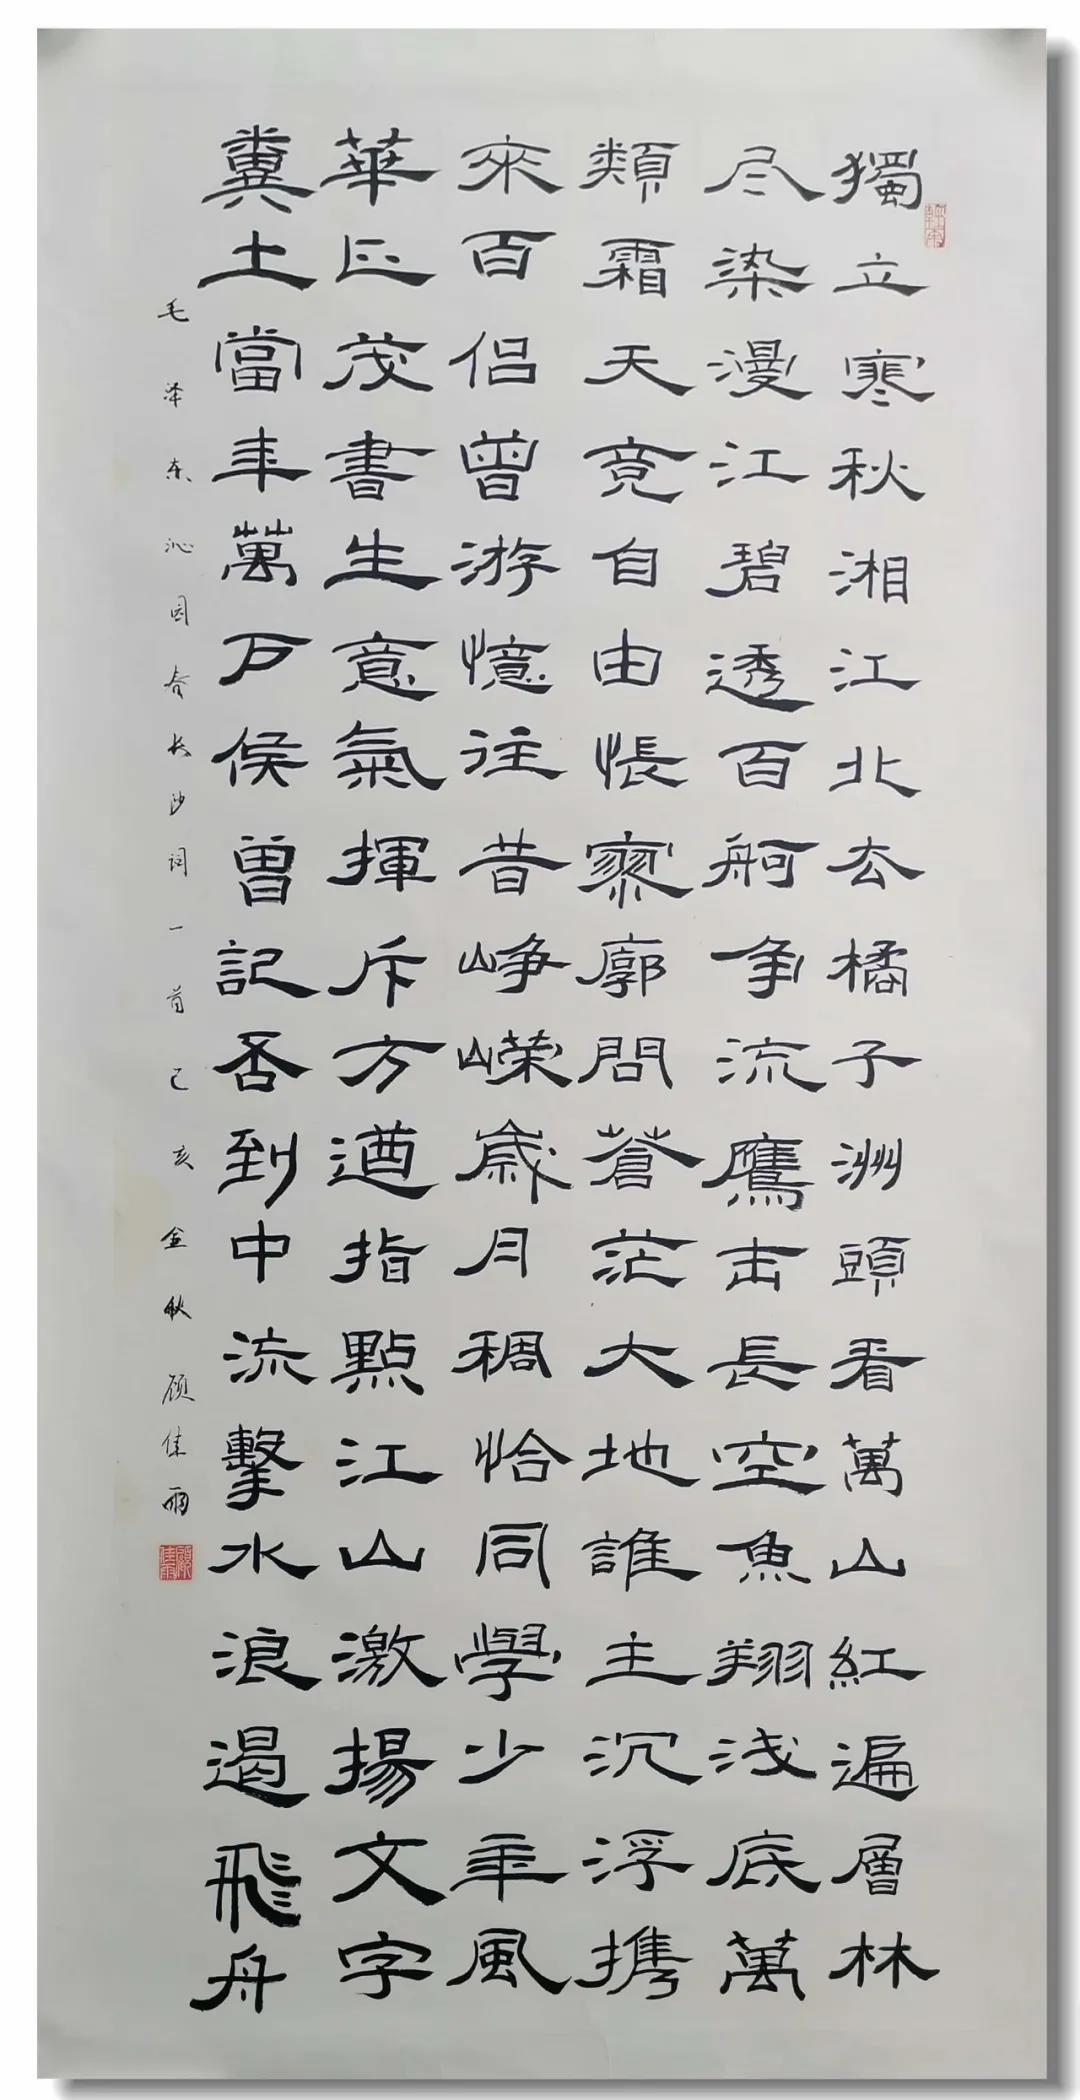 獨立寒秋湘江北去橘子洲頭看萬山紅遍層林
尽染漫江碧透百舸争流鷹击長空魚翔浅底萬
類霜天竞自由悵寥廓問蒼茫大地誰主沉浮携
來百侣曾游憶往昔峥嵘歲月稠恰同學少年風
華正茂書生意氣揮斥方遒指點江山激揚文字
糞土當年萬户侯曾記否到中流擊水浪遏飛舟
毛泽东沁园春长沙词一首己亥金秋顾佳雨
顧佳雨